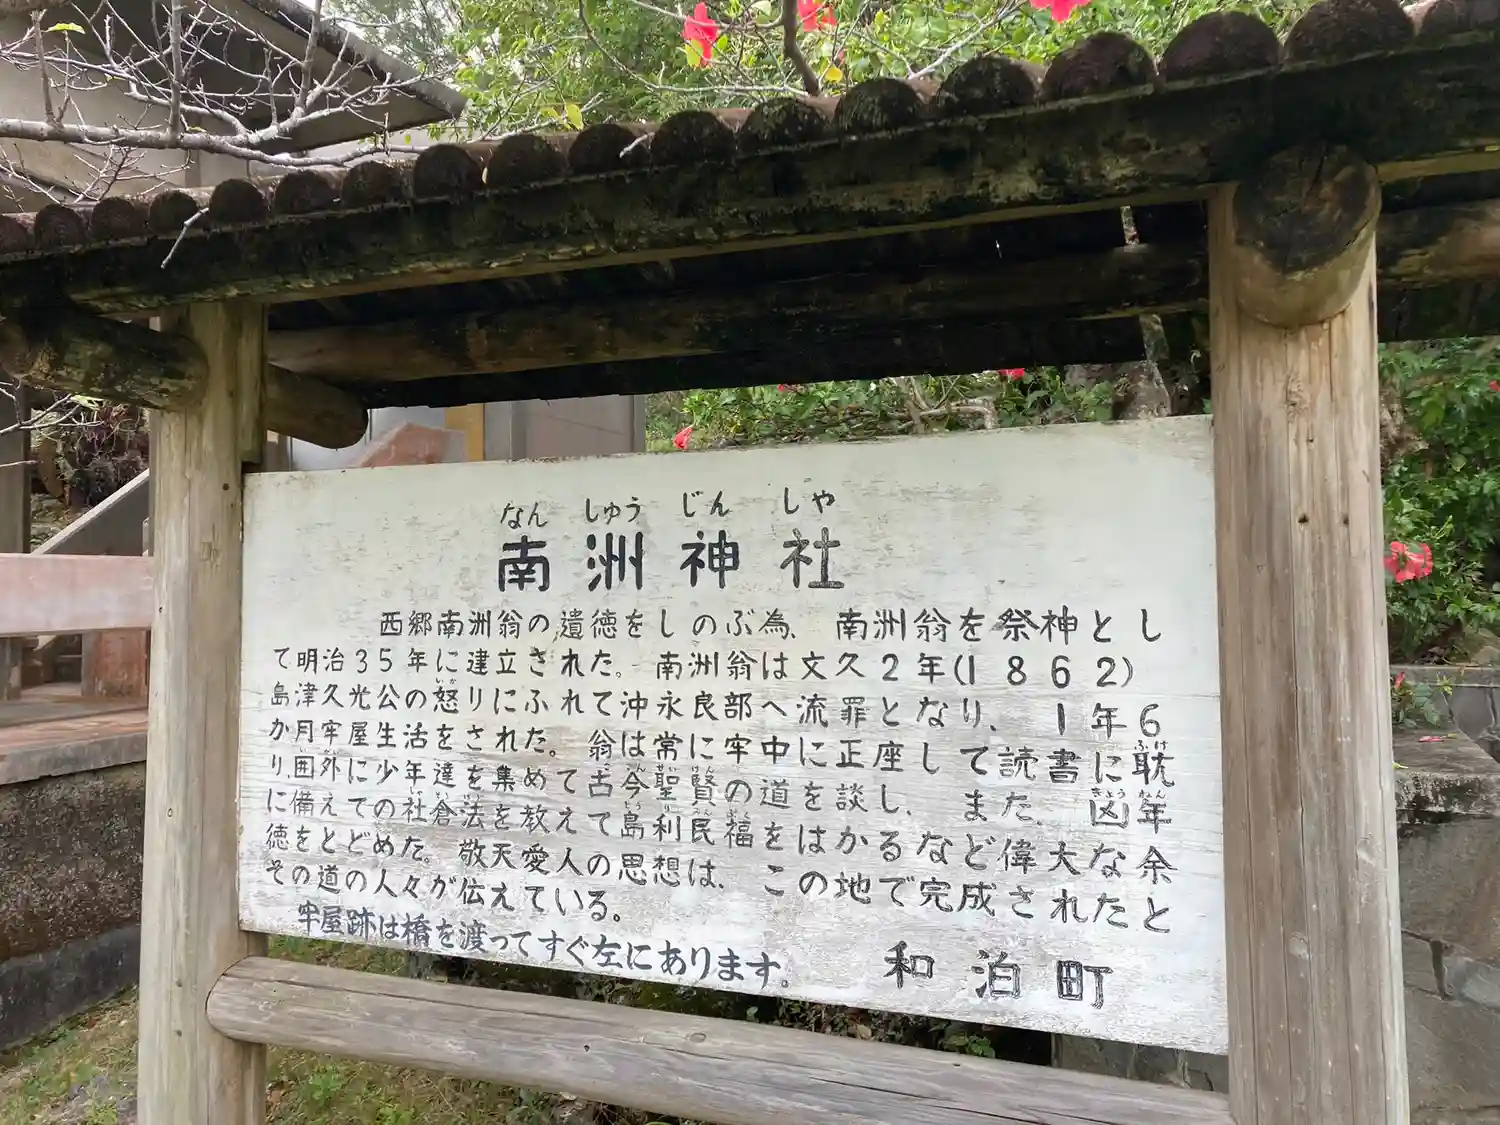 なん しゅう じん しゃ
南洲神社
西郷南洲翁の遺徳をしのぶ為、南洲翁を祭神とし
て明治35年に建立された。南洲翁は文久2年(1862)
島津久光公の怒りにふれて沖永良部へ流罪となり、1年6
か月牢屋生活をされた。翁は常に牢中に正座して読書に耽
り、囲外に少年達を集めて古今聖賢の道を談し、また、凶年
に備えての社倉法を教えて島利民福をはかるなど偉大な余
徳をとどめた。敬天愛人の思想は、この地で完成されたと
その道の人々が伝えている。
牢屋跡は橋を渡ってすぐ左にあります。
和泊町